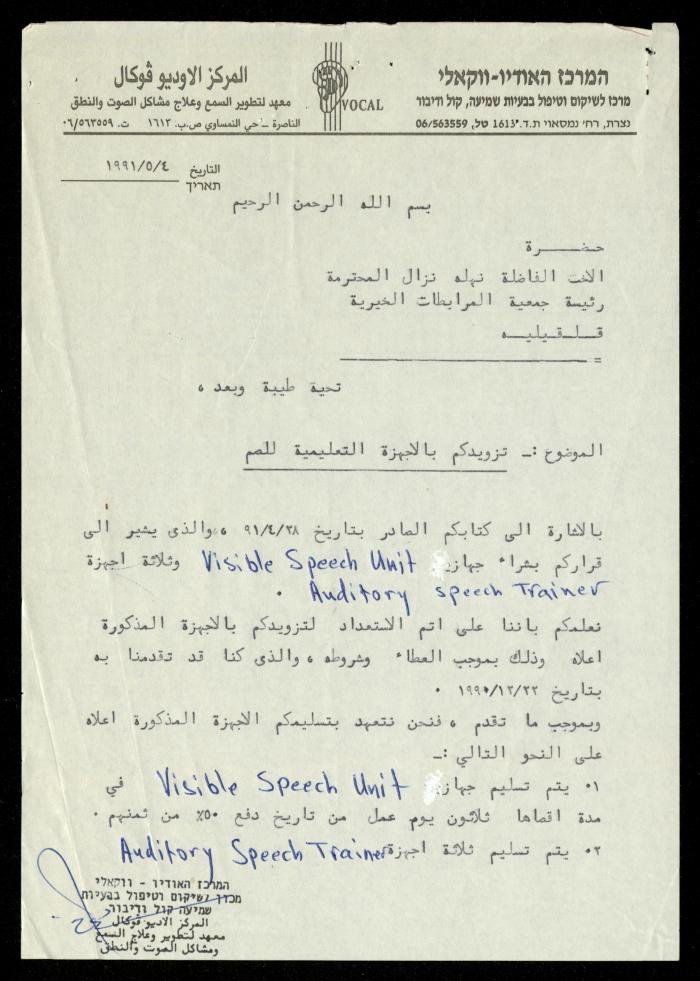 המרכז האודיו-ווקאלי
מרכז לשיקום וטיפול בבעיות שמיעה, קול ודיבור
נצרת, רח׳ נמסאוי ת.ד. 1613 טל, 06/563559
VOCAL
المركز الاوديو ڤوكال
معهد لتطوير السمع وعلاج مشاكل الصوت والنطق
الناصرة – حي النمساوي ص.ب. ١٦١٣ ت. ٠٦/٥٦٣٥٥٩
التاريخ ١٩٩١/٥/٤
תאריך
بسم الله الرحمن الرحيم
حضرة
الاخت الفاضلة نهله نزال المحترمة
رئيسة جمعية المرابطات الخيرية
قلقيليه
=
تحية طيبة وبعد ،
الموضوع :- تزويدكم بالاجهزة التعليمية للصم
بالاشارة الى كتابكم الصادر بتاريخ ٩١/٤/٢٨ ،،والذى يشير الى
قراركم بشراء جهاز Visible Speech Unit وثلاثة اجهزة
Auditory speech Trainer .
نعلمكم باننا على اتم الاستعداد لتزويدكم بالاجهزة المذكورة
اعلاه وذلك بموجب العطاء وشروطه ، والذى كنا قد تقدمنا به
بتاريخ ١٩٩٠/١٢/٢٢ .
وبموجب ما تقدم ، فنحن نتعهد بتسليمكم الاجهزة المذكورة اعلاه
على النحو التالي :-
٠١ يتم تسليم جهاز Visible Speech Unit في
مدة اقصاها ثلاثون يوم عمل من تاريخ دفع ٥٠٪ من ثمنهم .
٠٢ يتم تسليم ثلاثة اجهزة Auditory Speech Trainer
המרכז האודיו - ווקאלי
מכון ושיקום וטיפול בבעיות
שמיעה קול ודיבור
المركز الاديو ڤوكال
معهد لتطوير وعلاج السمع
ومشاكل الصوت والنطق